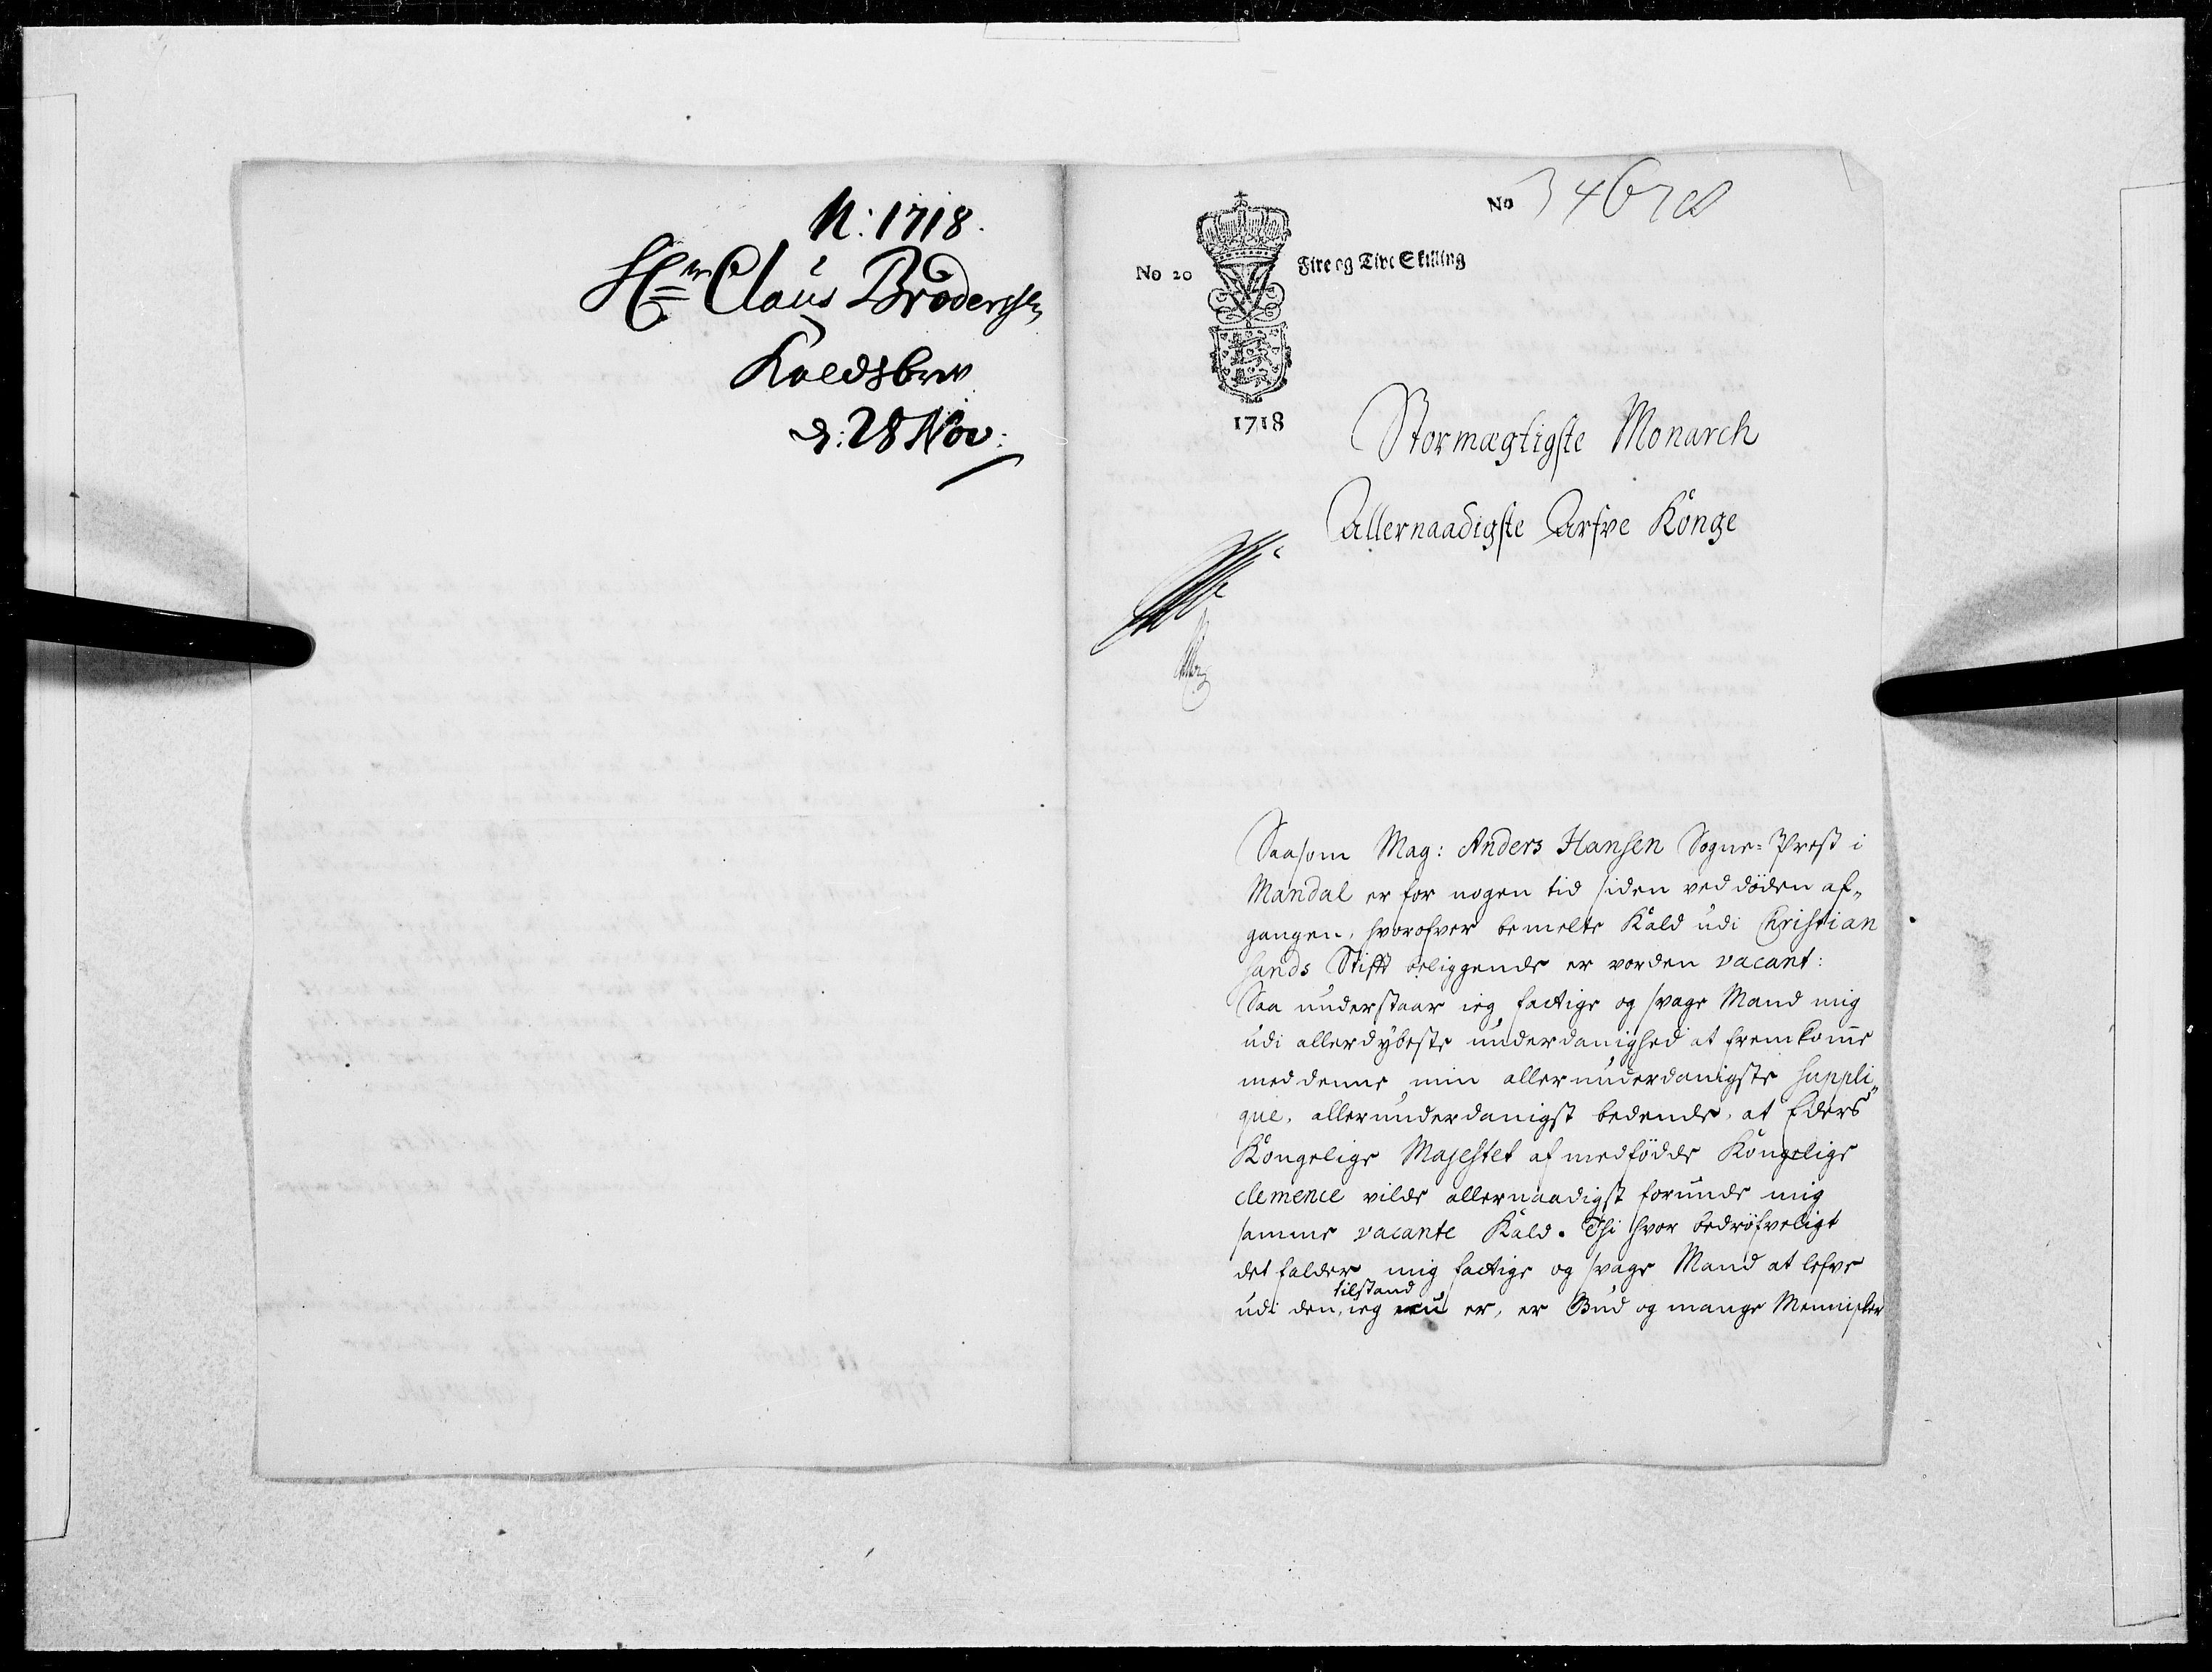 N: 1718.
Hr Claus Brodersen
Kaldsbrev
d: 28 Nov:
No 34678
No 20
Fire og Tive Skilling
1718
Stormægtigste Monarch
Allernaadigste Arfve Konge
Saasom Mag: Anders Hansen Sogne-Prest i
Mandal er for nogen tid siden ved döden af-
gangen, hvorofver bemelte Kald udi Christian
sands Stift beliggende er vorden vacant:
Saa understaar ieg fattige og svage Mand mig
udi allerdybeste underdanighed at fremkom̄e
med denne min allerunderdanigste suppli-
que, allerunderdanigst bedende, at Eders
Kongelige Majestet af medfödde Kongelige
clemence vilde allernaadigst forunde mig
samme vacante Kald. Thi hvor bedröfveligt
det falder mig fattige og svage Mand at lefve
tilstand
udi den, ieg nu er, er Gud og mange Mennisker